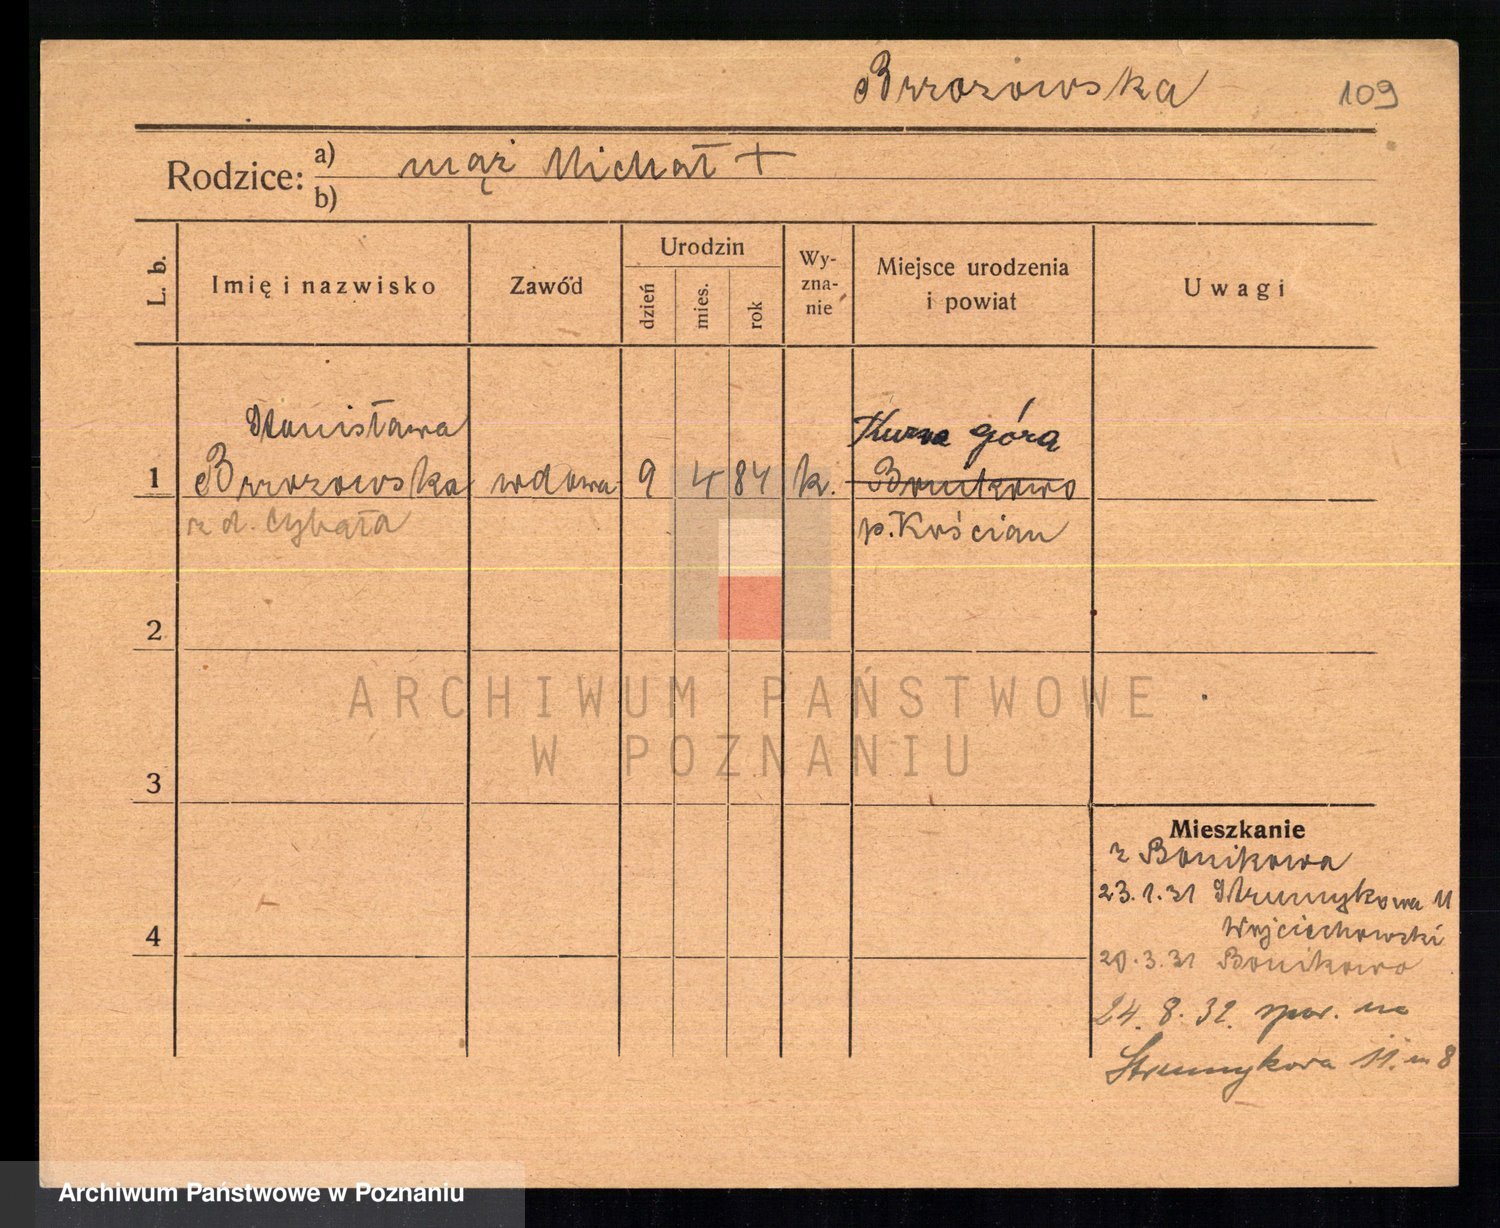 Brzozowska 109
Rodzice: a) mąż Michał +
b)
L. b. Imię i nazwisko Zawód Urodzin dzień mies. rok Wy-zna-nie Miejsce urodzenia i powiat Uwagi
Stanisława Kurza góra
1 Brzozowska wdowa 9 4 84 k. Bonikowo
z d. Cybała p. Kościan
2
ARCHIWUM PAŃSTWOWE
W POZNANIU
3
Mieszkanie
z Bonikowa
23.1.31 Strumykowa 11
Wojciechowski
4
20.3.31 Bonikowo
24.8.32. spow. na
Strumykowa 11. m 8
Archiwum Państwowe w Poznaniu